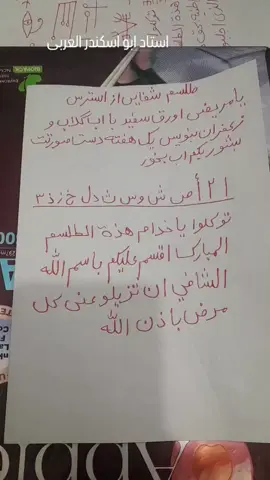 استاد ابو اسکندر العربی
طلسم شفایی از استرس
یا مریضی اورق سفید با اب گلاب و
زعفران بنویس یک هفته دست صورتت
بشور یکم اب بخور
ا ٢ أ ص ش و س ث د ل خ ز ذ ٣
توكلوا يا خدام هذة الطلسم
المباركا اقسم عليكم باسم الله
الشافي ان تزيلو عني كل
مرض باذن الله